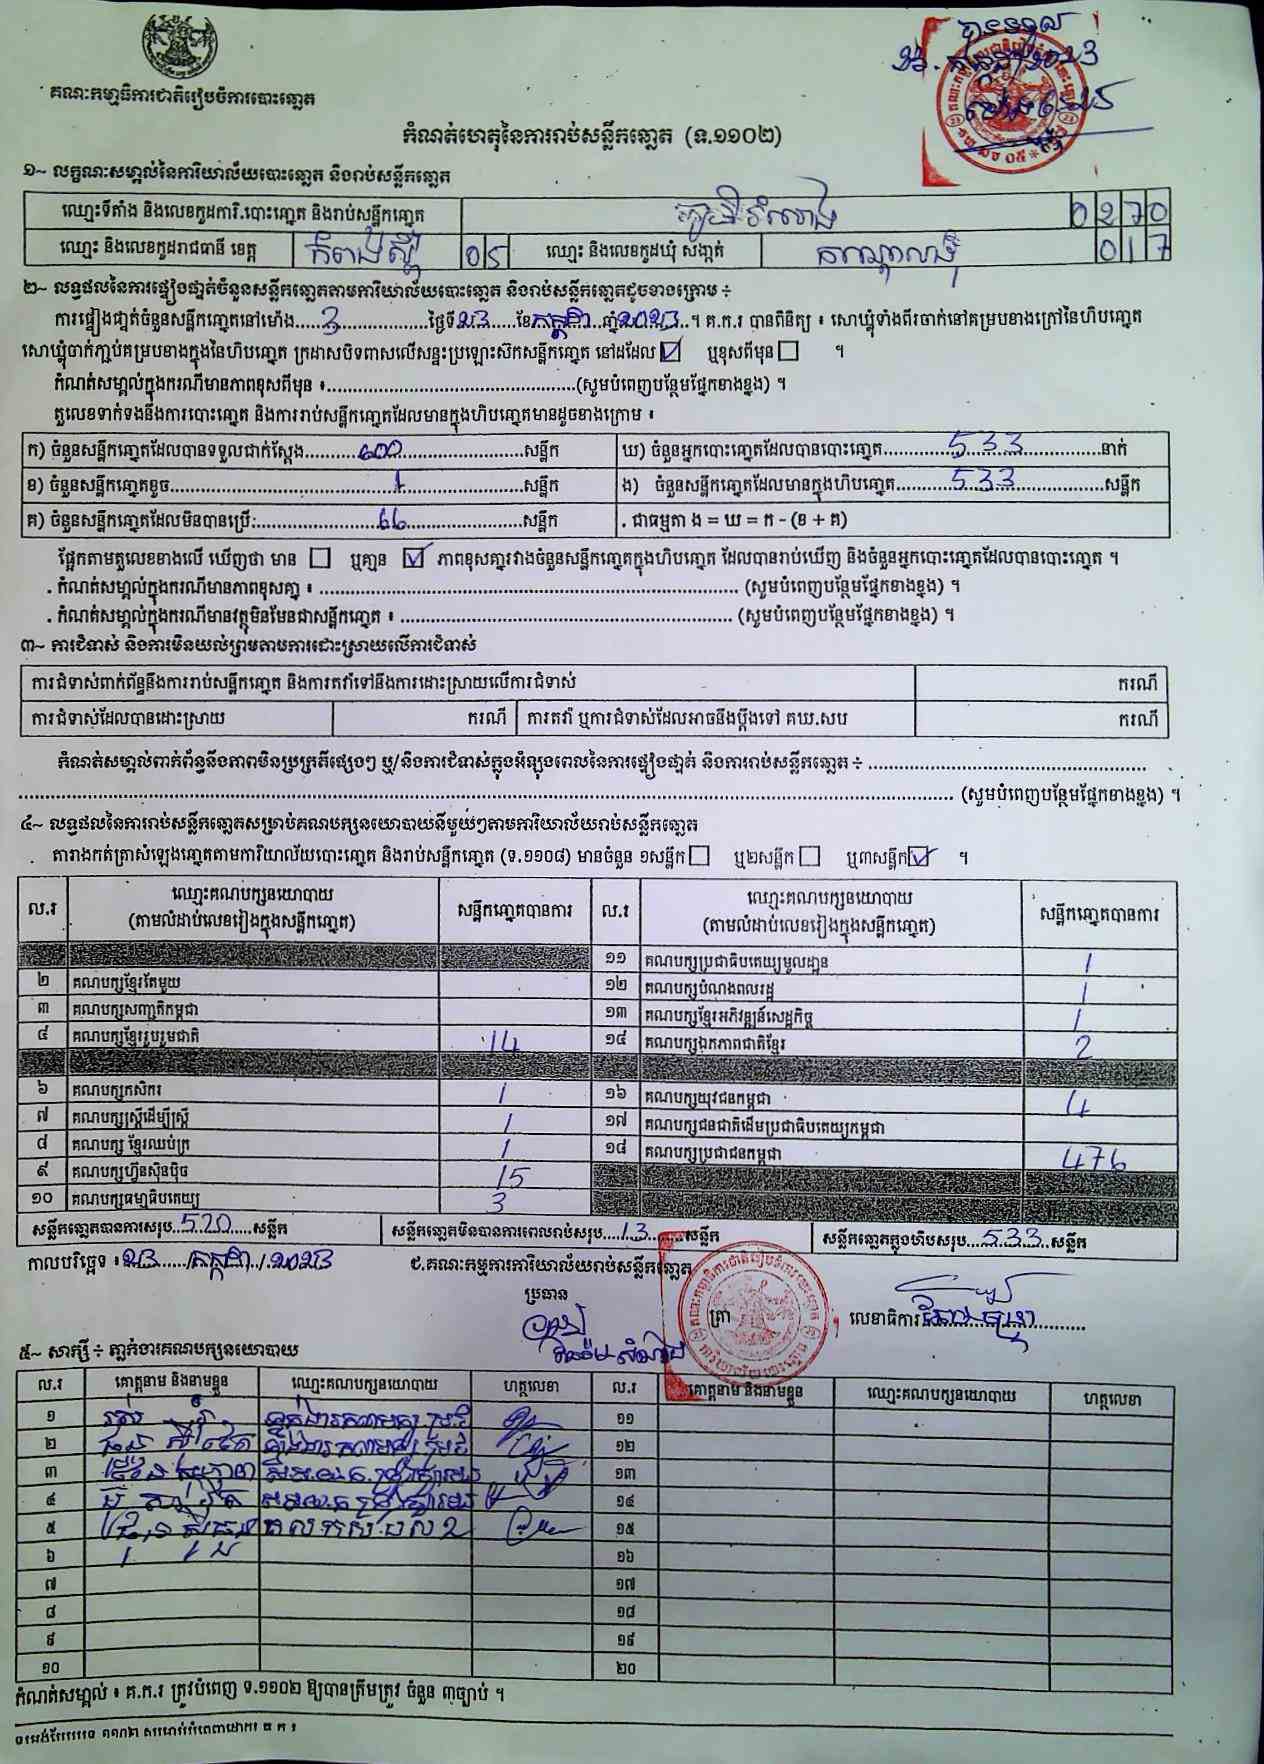 គណៈកម្មាធិការជាតិរៀបចំការបោះឆ្នោត
បានទទួល
កំណត់ហេតុនៃការរាប់សន្លឹកឆ្នោត (ទ.១១០២)
១~ លក្ខណៈសម្គាល់នៃការិយាល័យបោះឆ្នោត និងរាប់សន្លឹកឆ្នោត
ឈ្មោះទីតាំង និងលេខកូដការិ.បោះឆ្នោត និងរាប់សន្លឹកឆ្នោត 0270
ឈ្មោះ និងលេខកូដរាជធានី ខេត្ត កំពង់ស្ពឺ 05 ឈ្មោះ និងលេខកូដឃុំ សង្កាត់ 017
២~ លទ្ធផលនៃការផ្ទៀងផ្ទាត់ចំនួនសន្លឹកឆ្នោតតាមការិយាល័យបោះឆ្នោត និងរាប់សន្លឹកឆ្នោតដូចខាងក្រោម ÷
ការផ្ទៀងផ្ទាត់ចំនួនសន្លឹកឆ្នោតនៅម៉ោង...3...ថ្ងៃទី23...ខែកក្កដា..ឆ្នាំ2023..។ គ.ក.រ បានពិនិត្យ ៖ សោឃ្លុំទាំងពីរចាក់នៅគម្របខាងក្រៅនៃហិបឆ្នោត
សោឃ្លុំចាក់ភ្ជាប់គម្របខាងក្នុងនៃហិបឆ្នោត ក្រដាសបិទពាសលើសន្ទះប្រឡោះស៊កសន្លឹកឆ្នោត នៅដដែល ☑ ឬខុសពីមុន ☐ ។
កំណត់សម្គាល់ក្នុងករណីមានភាពខុសពីមុន ៖...(សូមបំពេញបន្ថែមផ្នែកខាងខ្នង) ។
តួលេខទាក់ទងនឹងការបោះឆ្នោត និងការរាប់សន្លឹកឆ្នោតដែលមានក្នុងហិបឆ្នោតមានដូចខាងក្រោម ៖
ក) ចំនួនសន្លឹកឆ្នោតដែលបានទទួលជាក់ស្តែង...600...សន្លឹក ឃ) ចំនួនអ្នកបោះឆ្នោតដែលបានបោះឆ្នោត...533...នាក់
ខ) ចំនួនសន្លឹកឆ្នោតខូច...1...សន្លឹក ង) ចំនួនសន្លឹកឆ្នោតដែលមានក្នុងហិបឆ្នោត...533...សន្លឹក
គ) ចំនួនសន្លឹកឆ្នោតដែលមិនបានប្រើ...66...សន្លឹក . ជាធម្មតា ង = ឃ = ក - (ខ + គ)
ផ្អែកតាមតួលេខខាងលើ ឃើញថា មាន ☐ ឬគ្មាន ☑ ភាពខុសគ្នារវាងចំនួនសន្លឹកឆ្នោតក្នុងហិបឆ្នោត ដែលបានរាប់ឃើញ និងចំនួនអ្នកបោះឆ្នោតដែលបានបោះឆ្នោត ។
. កំណត់សម្គាល់ក្នុងករណីមានភាពខុសគ្នា ៖ ... (សូមបំពេញបន្ថែមផ្នែកខាងខ្នង) ។
. កំណត់សម្គាល់ក្នុងករណីមានវត្ថុមិនមែនជាសន្លឹកឆ្នោត ៖ ... (សូមបំពេញបន្ថែមផ្នែកខាងខ្នង) ។
៣~ ការជំទាស់ និងការមិនយល់ព្រមតាមការដោះស្រាយលើការជំទាស់
ការជំទាស់ពាក់ព័ន្ធនឹងការរាប់សន្លឹកឆ្នោត និងការតវ៉ាទៅនឹងការដោះស្រាយលើការជំទាស់ ករណី
ការជំទាស់ដែលបានដោះស្រាយ ករណី ការតវ៉ា ឬការជំទាស់ដែលអាចនឹងប្តឹងទៅ គឃ.សប ករណី
កំណត់សម្គាល់ពាក់ព័ន្ធនឹងភាពមិនប្រក្រតីផ្សេងៗ ឬ/និងការជំទាស់ក្នុងអំឡុងពេលនៃការផ្ទៀងផ្ទាត់ និងការរាប់សន្លឹកឆ្នោត ÷ ...
... (សូមបំពេញបន្ថែមផ្នែកខាងខ្នង) ។
៤~ លទ្ធផលនៃការរាប់សន្លឹកឆ្នោតសម្រាប់គណបក្សនយោបាយនីមួយៗតាមការិយាល័យរាប់សន្លឹកឆ្នោត
តារាងកត់ត្រាសំឡេងឆ្នោតតាមការិយាល័យបោះឆ្នោត និងរាប់សន្លឹកឆ្នោត (ទ.១១០៨) មានចំនួន ១សន្លឹក ☐ ឬ២សន្លឹក ☐ ឬ៣សន្លឹក ☑ ។
ល.រ ឈ្មោះគណបក្សនយោបាយ (តាមលំដាប់លេខរៀងក្នុងសន្លឹកឆ្នោត) សន្លឹកឆ្នោតបានការ ល.រ ឈ្មោះគណបក្សនយោបាយ (តាមលំដាប់លេខរៀងក្នុងសន្លឹកឆ្នោត) សន្លឹកឆ្នោតបានការ
១១ គណបក្សប្រជាធិបតេយ្យមូលដ្ឋាន 1
២ គណបក្សខ្មែរតែមួយ ១២ គណបក្សបំណងពលរដ្ឋ 1
៣ គណបក្សសញ្ជាតិកម្ពុជា ១៣ គណបក្សខ្មែរអភិវឌ្ឍន៍សេដ្ឋកិច្ច 1
៤ គណបក្សខ្មែររួបរួមជាតិ 14 ១៤ គណបក្សឯកភាពជាតិខ្មែរ 2
៦ គណបក្សកសិករ 1 ១៦ គណបក្សយុវជនកម្ពុជា 4
៧ គណបក្សស្ត្រីដើម្បីស្ត្រី 1 ១៧ គណបក្សជនជាតិដើមប្រជាធិបតេយ្យកម្ពុជា
៨ គណបក្ស ខ្មែរឈប់ក្រ 1 ១៨ គណបក្សប្រជាជនកម្ពុជា 476
៩ គណបក្សហ៊្វុនស៊ិនប៉ិច 15
១០ គណបក្សធម្មាធិបតេយ្យ 3
សន្លឹកឆ្នោតបានការសរុប..520...សន្លឹក សន្លឹកឆ្នោតមិនបានការពេលរាប់សរុប...13...សន្លឹក សន្លឹកឆ្នោតក្នុងហិបសរុប..533..សន្លឹក
កាលបរិច្ឆេទ ៖23.../កក្កដា/.2023 ជ.គណៈកម្មការការិយាល័យរាប់សន្លឹកឆ្នោត
ប្រធាន ត្រា លេខាធិការ
៥~ សាក្សី ÷ ភ្នាក់ងារគណបក្សនយោបាយ
ល.រ គោត្តនាម និងនាមខ្លួន ឈ្មោះគណបក្សនយោបាយ ហត្ថលេខា ល.រ គោត្តនាម និងនាមខ្លួន ឈ្មោះគណបក្សនយោបាយ ហត្ថលេខា
១ ១១
២ ១២
៣ ១៣
៤ ១៤
៥ ១៥
៦ ១៦
៧ ១៧
៨ ១៨
៩ ១៩
១០ ២០
កំណត់សម្គាល់ ៖ គ.ក.រ ត្រូវបំពេញ ទ.១១០២ ឱ្យបានត្រឹមត្រូវ ចំនួន ៣ច្បាប់ ។